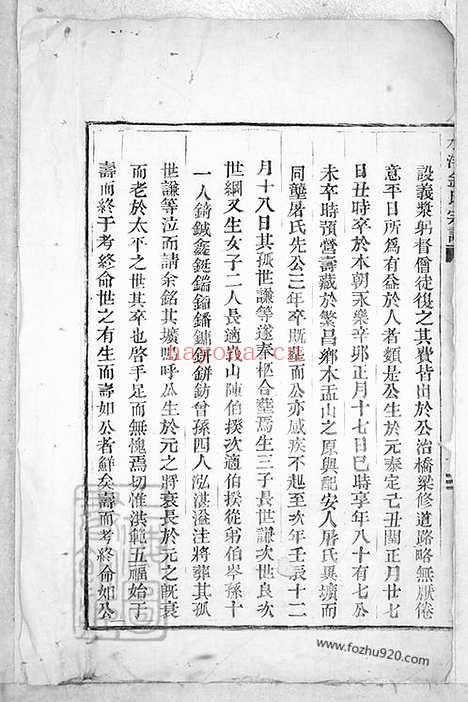 設義漿躬督僧徒復之其費皆出於公治橋梁修道路略無厭倦
意平日所為有益於人者類是公生於元泰定己丑閏正月廿七
日丑時卒於本朝永樂辛卯正月十七日巳時享年八十有七公
未卒時預營壽藏於繁昌鄉木盂山之原與配安人屠氏異壙而
同壟屠氏先公三年卒既塟而公亦感疾不起至次年壬辰十二
月十八日其孤世謙等遂奉柩合塟焉生三子長世謙次世良次
世綱又生女子二人長適段山陳伯揆次適伯揆從弟伯岑孫十
一人錡鉞鑫鋌鎦鐇鏞鉼鈁曾孫四人泓湛溢注將葬其孤
世謙等泣而請余銘其壙嗚呼公生於元之將衰長於元之既衰
而老於太平之世其卒也啓手足而無愧焉切惟洪範五福始于
壽而終于考終命世之有生而壽如公者鮮矣壽而考終命如公
氏宗譜
harona.com
www.fozhu920.com